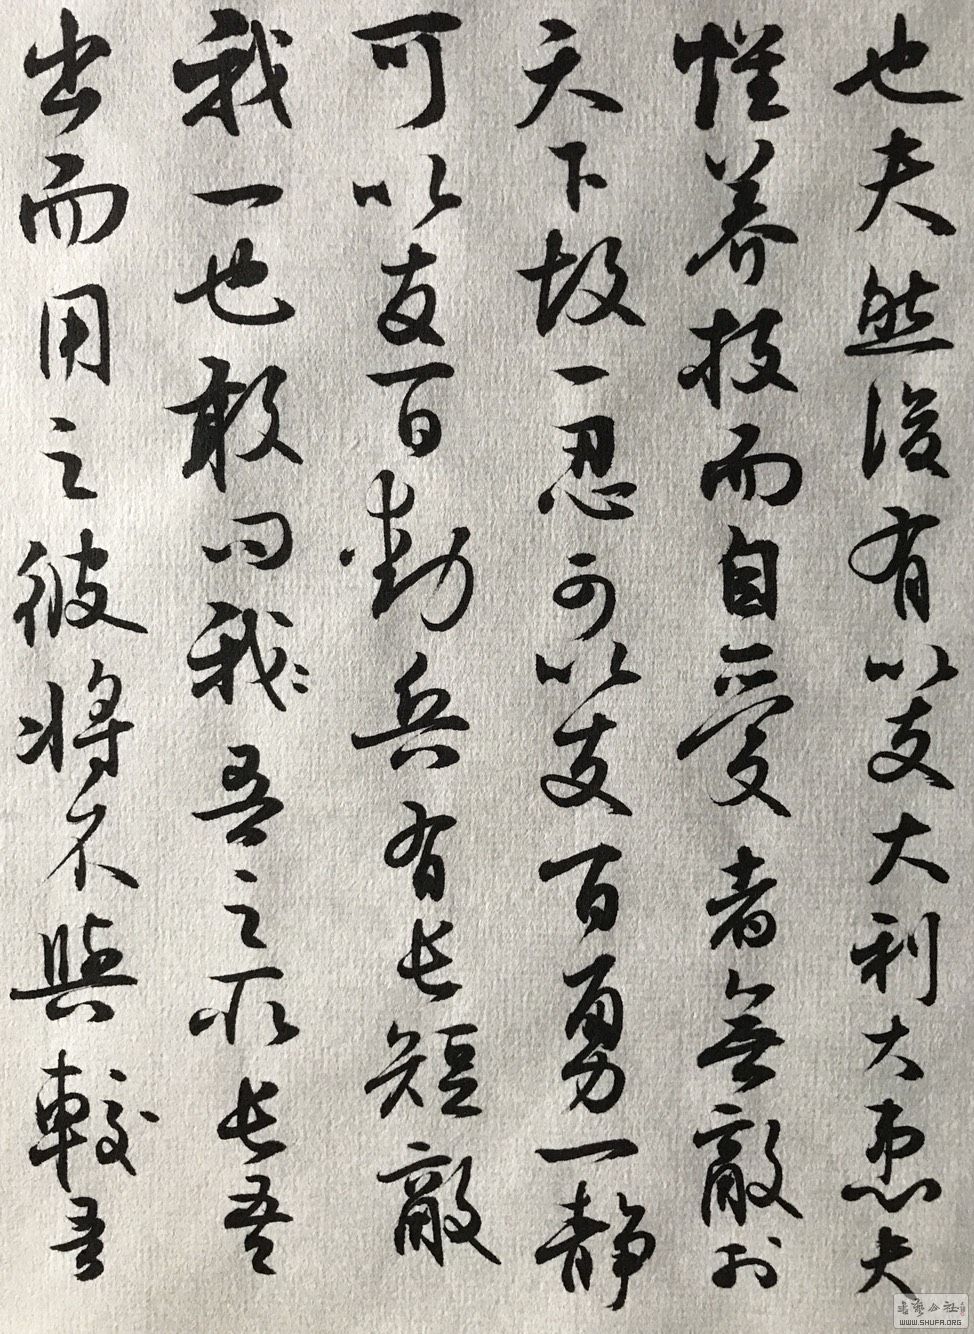 也夫然後有以支大利大患夫
惟养技而自愛者無敵於
天下故一忍可以支百勇一静
可以支百動兵有长短敵
我一也敢问我〻吾之所长吾
出而用之彼将不與較吾
书艺公社
WWW.SHUFA.ORG